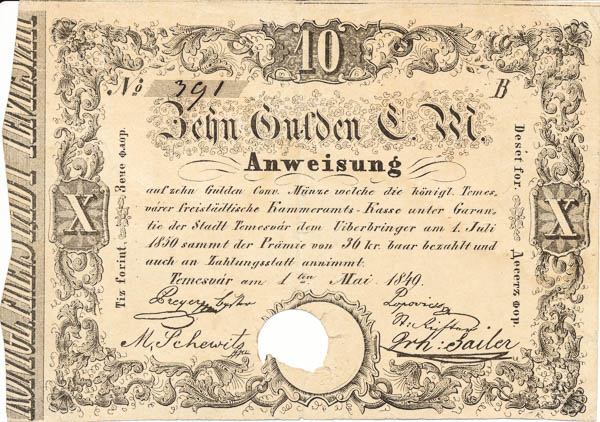 10
No 391 B
Zehn Gulden C. M.
Anweisung
auf zehn Gulden Conv. Münze welche die königl. Temes-
várer freistädtische Kammeramts-Kasse unter Garan-
tie der Stadt Temesvár dem Uiberbringer am 1. Juli
1850 sammt der Prämie von 36 kr. baar bezahlt und
auch an Zahlungsstatt annimmt.
Temesvár am 1 ten Mai 1849.
Preyer
Popovics
Joh: Sailer
X
X
Tiz forint.
Зече флор.
Deset for.
Десетъ фор.